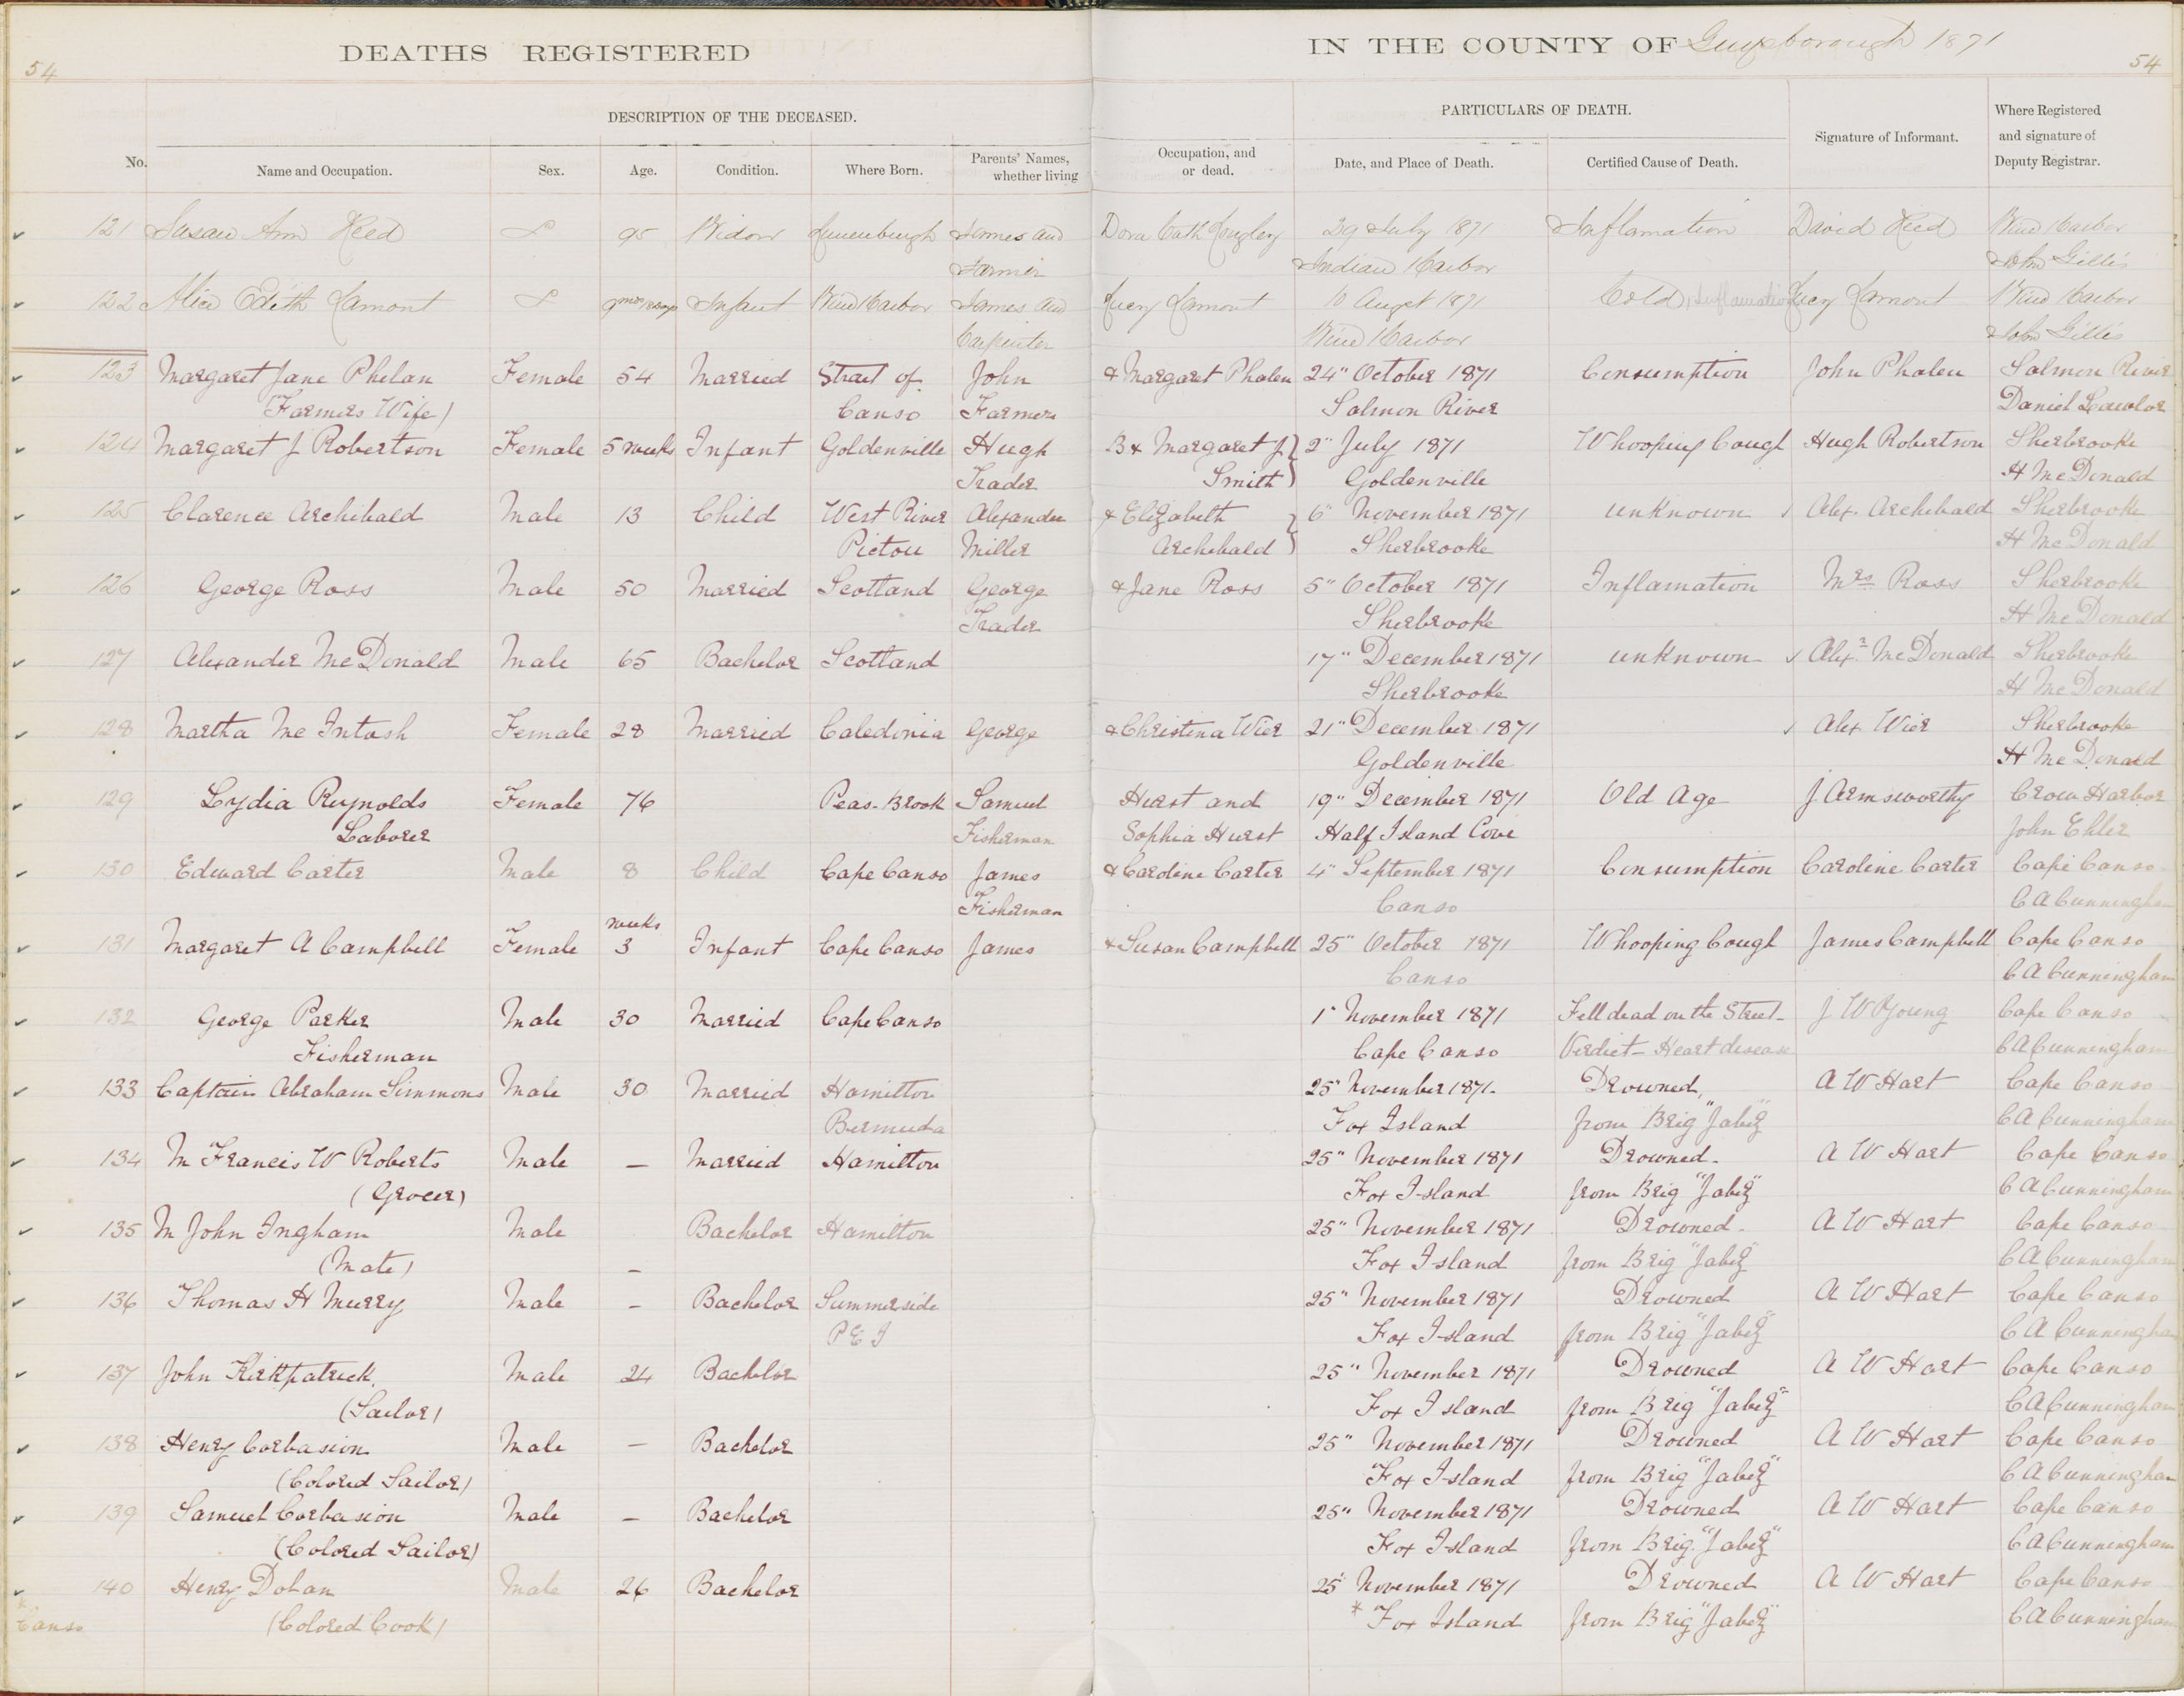 DEATHS REGISTERED IN THE COUNTY OF Guysborough 1871
54 54
DESCRIPTION OF THE DECEASED. PARTICULARS OF DEATH.
No. Name and Occupation. Sex. Age. Condition. Where Born. Parents' Names, whether living Occupation, and or dead. Date, and Place of Death. Certified Cause of Death. Signature of Informant. Where Registered and signature of Deputy Registrar.
121 Susan Ann Reed 95 Widow Lunenburgh James and Dora Cath 29 July 1871 Inflamation David Reed Wine Harbor
Farmer Indian Harbor John Gillis
122 Alice Edith Lamont Infant Wine Harbor James and Lucy Lamont 10 Augst 1871 Cold, Inflamation Lucy Lamont Wine Harbor
Carpinter Wine Harbor John Gillis
123 Margaret Jane Phelan Female 54 Married Strait of John & Margaret Phalen 24" October 1871 Consumption John Phalen Salmon River
(Farmers Wife) Canso Farmer Salmon River Daniel Lawlor
124 Margaret J Robertson Female 5 weeks Infant Goldenville Hugh B & Margaret J. 2" July 1871 Whooping Cough Hugh Robertson Sherbrooke
Trader Smith Goldenville H McDonald
125 Clarence Archibald Male 13 Child West River Alexander & Elizabeth 6" November 1871 unknown Alex. Archibald Sherbrooke
Pictou Miller Archibald Sherbrooke H McDonald
126 George Ross Male 50 Married Scotland George & Jane Ross 5" October 1871 Inflamation Mrs Ross Sherbrooke
Trader Sherbrooke H McDonald
127 Alexander McDonald Male 65 Bachelor Scotland 17" December 1871 unknown Alexr McDonald Sherbrooke
Sherbrooke H McDonald
128 Martha McIntosh Female 28 Married Caledonia George & Christina Wier 21" December 1871 Alex Wier Sherbrooke
Goldenville H McDonald
129 Lydia Reynolds Female 76 Peas-Brook Samuel Hurst and 19" December 1871 Old Age J Armsworthy Crow Harbor
Laborer Fisherman Sophia Hurst Half Island Cove John Ehler
130 Edward Carter Male 8 Child Cape Canso James & Caroline Carter 4" September 1871 Consumption Caroline Carter Cape Canso
Fisherman Canso C A Cunningham
weeks
131 Margaret A Campbell Female 3 Infant Cape Canso James & Susan Campbell 25" October 1871 Whooping Cough James Campbell Cape Canso
Canso C A Cunningham
132 George Parker Male 30 Married Cape Canso 1" November 1871 Fell dead on the Street- J W Young Cape Canso
Fisherman Cape Canso Verdict- Heart disease C A Cunningham
133 Captain Abraham Simmons Male 30 Married Hamilton 25" November 1871. Drowned, A W Hart Cape Canso
Bermuda Fox Island from Brig "Jabez" C A Cunningham
134 M Francis W Roberts Male — Married Hamilton 25" November 1871 Drowned. A W Hart Cape Canso
(Grocer) Fox Island from Brig "Jabez" C A Cunningham
135 M John Ingham Male Bachelor Hamilton 25" November 1871 Drowned. A W Hart Cape Canso
(Mate) — Fox Island from Brig "Jabez" C A Cunningham
136 Thomas H Murry Male — Bachelor Summerside 25" November 1871 Drowned A W Hart Cape Canso
P E I Fox Island from Brig "Jabez" C A Cunningham
137 John Kirkpatrick. Male 24 Bachelor 25" November 1871 Drowned A W Hart Cape Canso
(Sailor) Fox Island from Brig "Jabez" C A Cunningham
138 Henry Corbasion Male — Bachelor 25" November 1871 Drowned A W Hart Cape Canso
(Colored Sailor) Fox Island from Brig "Jabez" C A Cunningham
139 Samuel Corbasion Male — Bachelor 25" November 1871 Drowned A W Hart Cape Canso
(Colored Sailor) Fox Island from Brig. "Jabez" C A Cunningham
140 Henry Dolan Male 26 Bachelor 25" November 1871 Drowned A W Hart Cape Canso
* Canso (Colored Cook) * Fox Island from Brig "Jabez" C A Cunningham